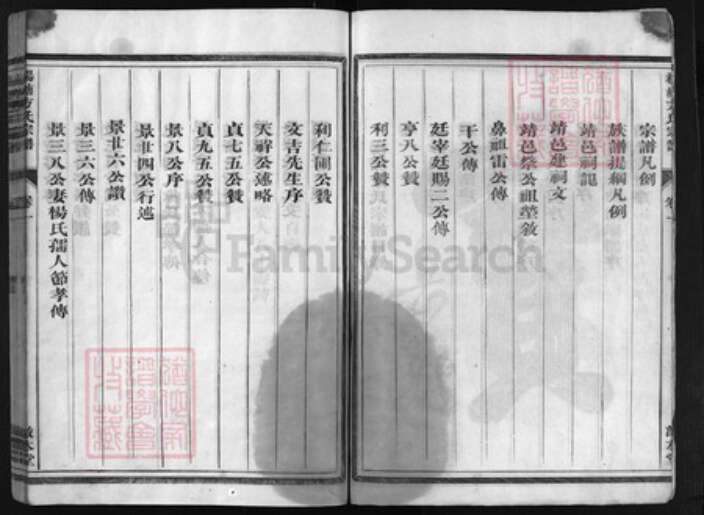 宗譜凡例
族譜提綱凡例
靖邑祠記
靖邑建祠文
靖邑祭公祖塋敘
鼻祖雷公傳
干公傳
廷宰廷賜二公傳
亨八公贊
利三公贊
利仁圃公贊
文吉先生序
天祥公述略
貞七五公贊
貞九五公贊
景八公序
景廿四公行述
景廿六公讚
景三六公傳
景三八公妻楊氏孺人節孝傳
方氏宗譜
卷一
敦本堂
FamilySearch